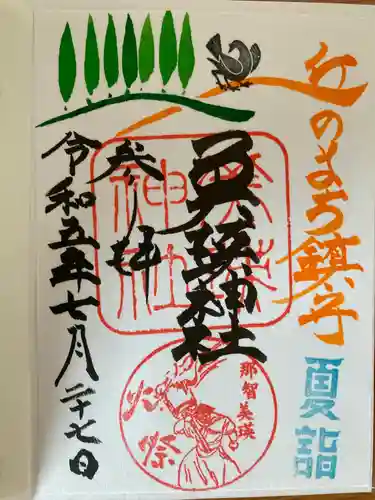 丘のまち鎮守
夏詣
美瑛神社
参り拝
令和五年七月二十七日
美瑛神社
那智美瑛
火祭